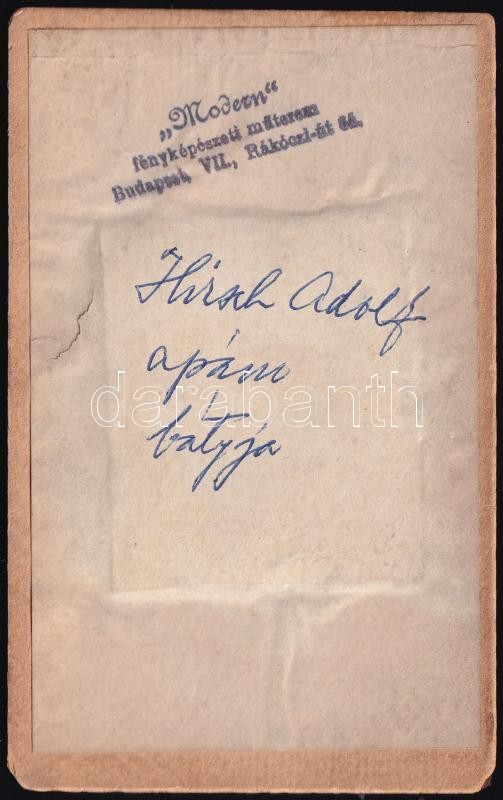 „Modern“
fényképészeti műterem
Budapest, VII., Rákóczi-út
Hirsch Adolf
apám
bátyja
darabanth